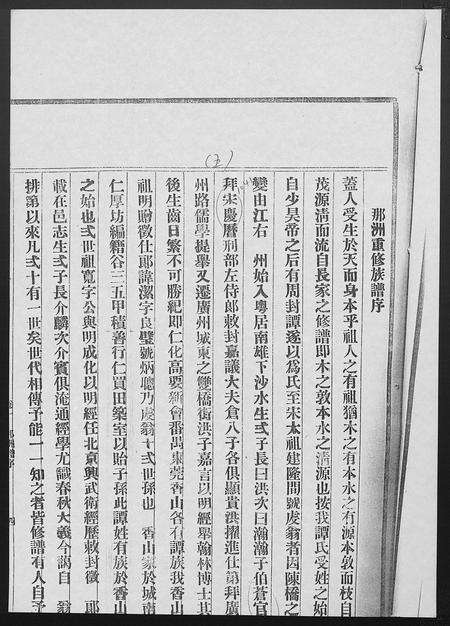 (3)
那洲重修族譜序
蓋人受生於天而身本乎祖人之有祖猶木之有本水之有源本敦而枝自
茂源淸而流自長家之修譜卽木之敦本水之淸源也按我譚氏受姓之始
自少昊帝之后有周封譚遂以爲氏至朱太祖建隆間號虔翁者因陳橋之
變由江右 州始入粤居南雄下沙水生弍子長曰洪次曰瀚瀚子伯蒼官
拜宋慶曆刑部左侍郞敕封嘉議大夫倉八子各俱顯貴洪擢進仕第拜廣
州路儒學提舉又遷廣州城東之雙橋街洪子嘉言以明經舉翰林博士其
後生齒日繁不可勝紀卽仁化高要新會番禺東莞香山各有譚族我香山
祖明贈徵仕郞諱潔字良璧號炳聰乃虔翁十弍世孫也 香山家於城南
仁厚坊編籍谷三五甲積善行仁買田築室以貽子孫此譚姓有族於香山
之始也弍世祖寬字公輿明成化以明經任北京興武衛經歷敕封徵 郞
載在邑志生弍子長介麟次介賓俱淹通經學尤識春秋大義今謁自 翁
排第以來凡弍十有一世矣世代相傳予能一一知之者皆修譜有人自予